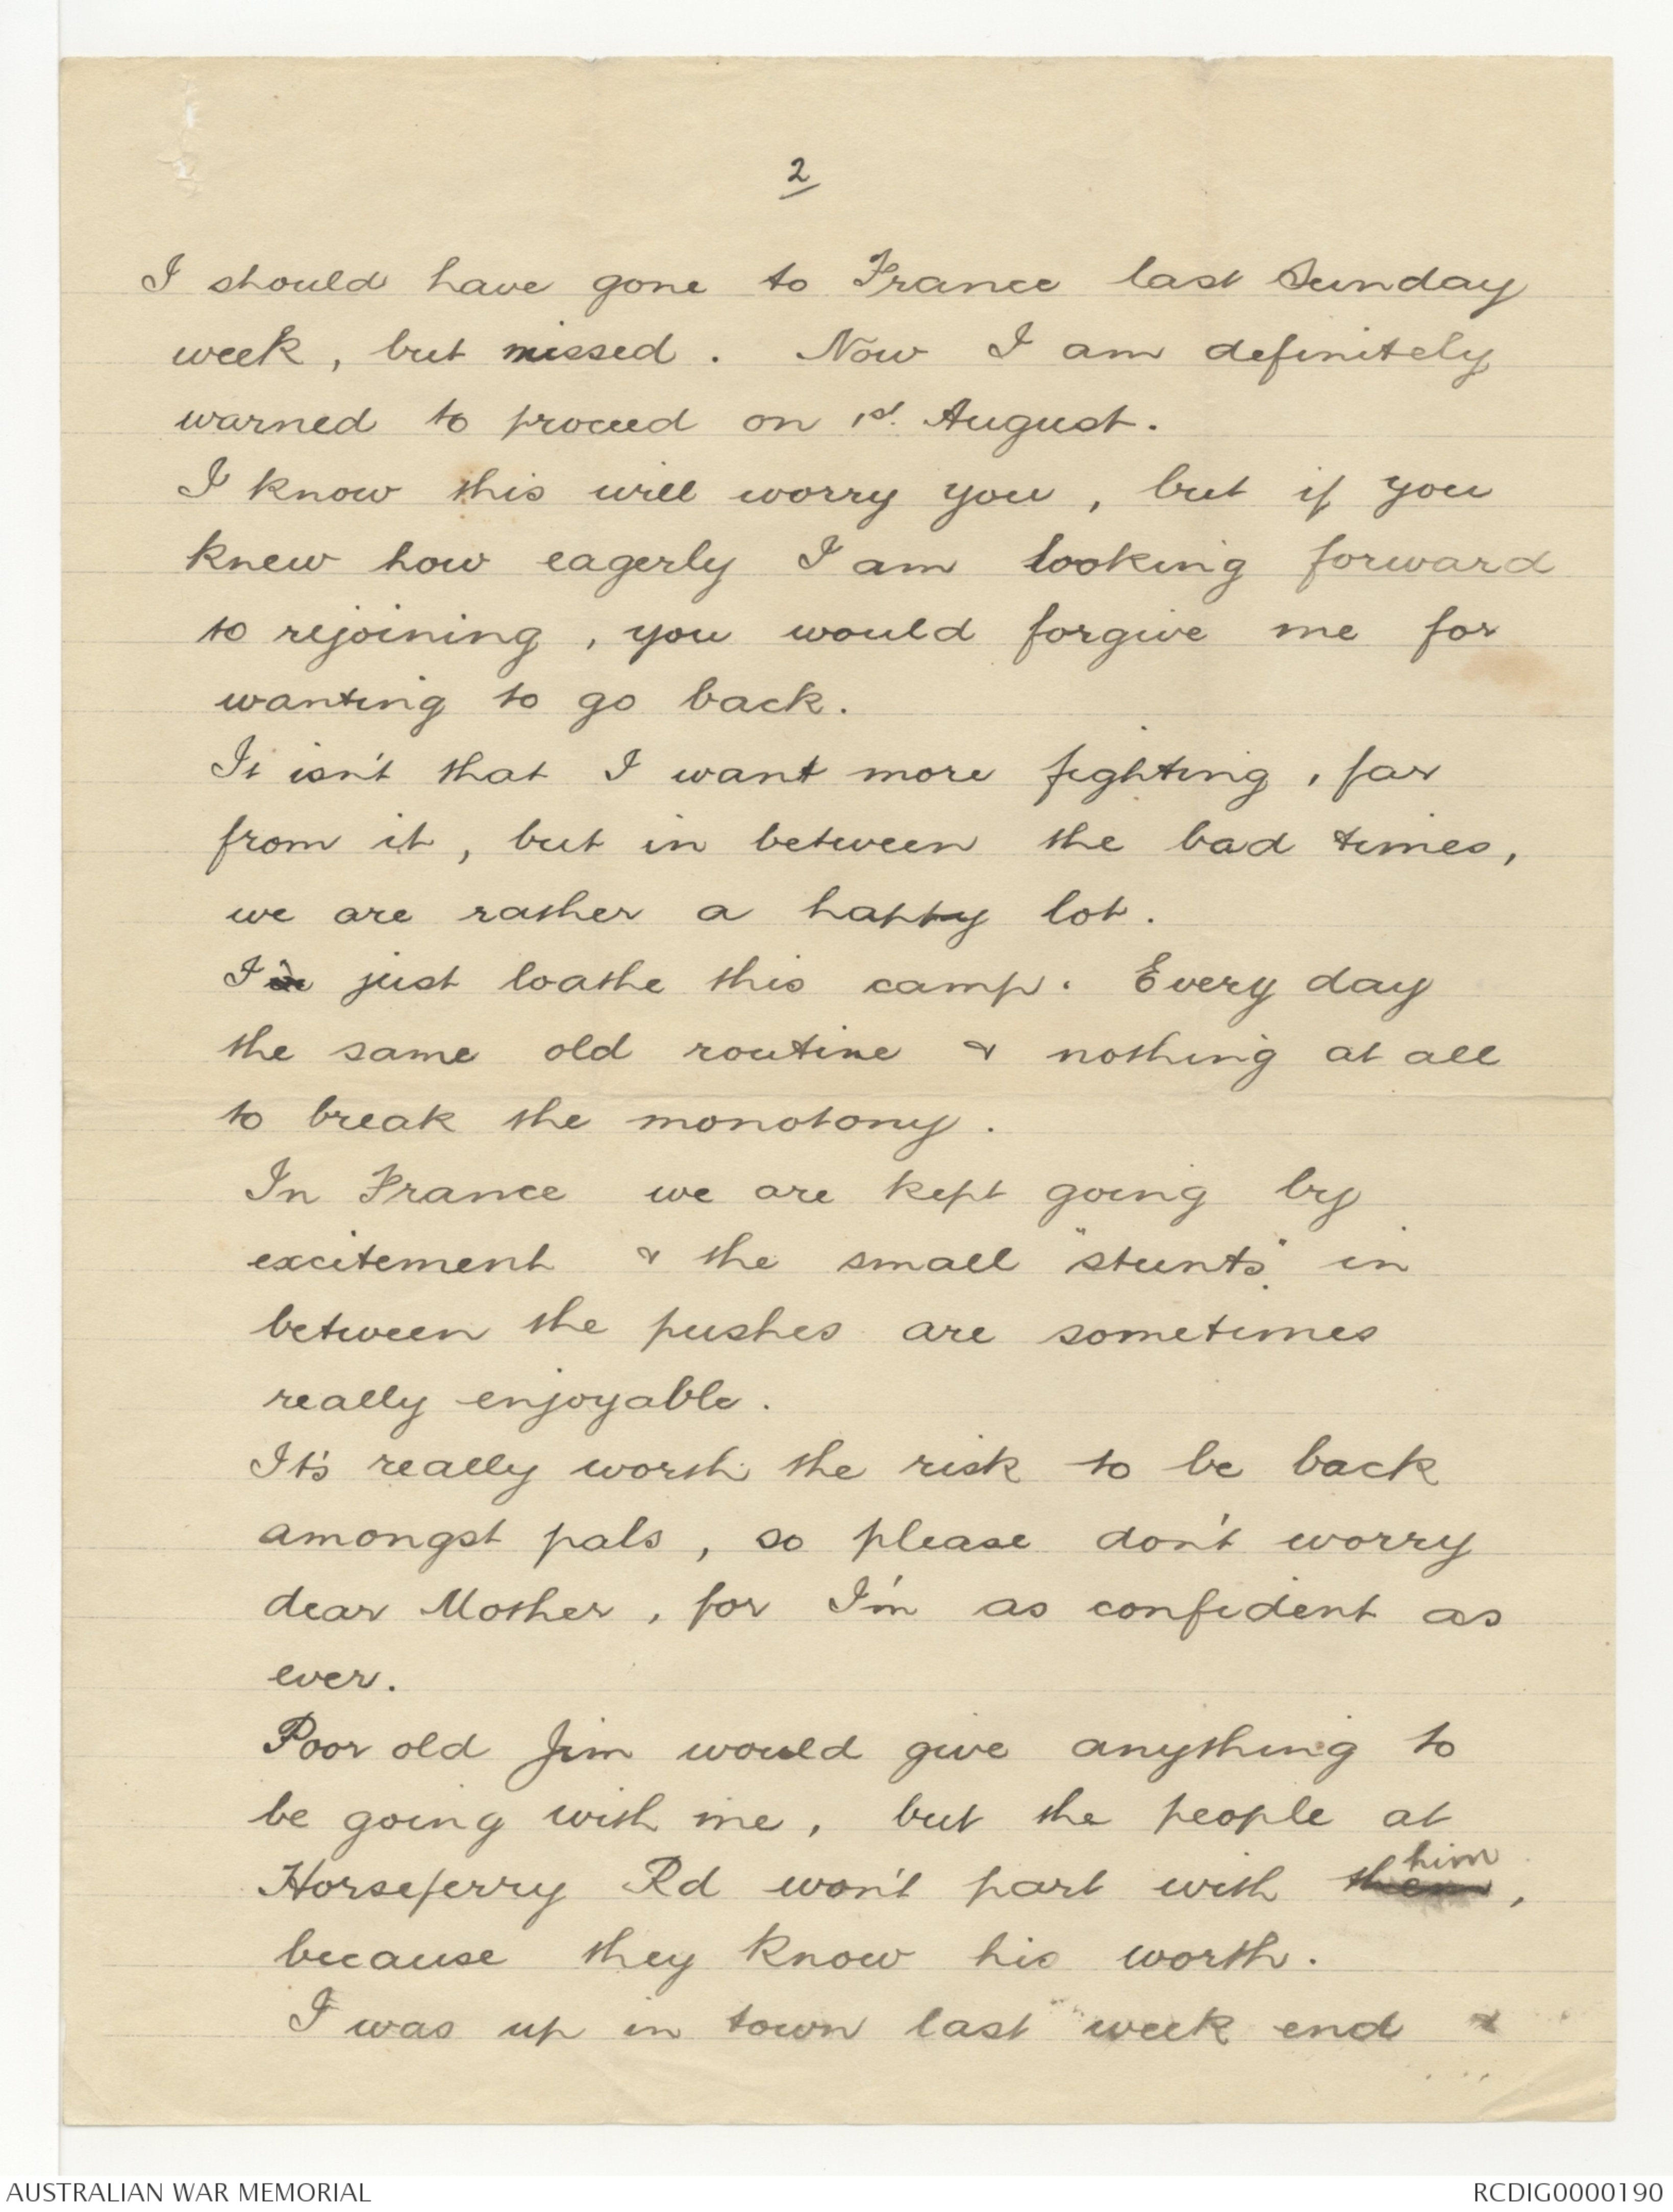 2
I should have gone to France last Sunday
week, but missed. Now I am definitely
warned to proceed on 1st. August.
I know this will worry you, but if you
knew how eagerly I am looking forward
to rejoining, you would forgive me for
wanting to go back.
It isn't that I want more fighting, far
from it, but in between the bad times,
we are rather a happy lot.
I just loathe this camp. Every day
the same old routine & nothing at all
to break the monotony.
In France we are kept going by
excitement & the small "stunts" in
between the pushes are sometimes
really enjoyable.
It's really worth the risk to be back
amongst pals, so please don't worry
dear Mother, for I'm as confident as
ever.
Poor old Jim would give anything to
be going with me, but the people at
Horseferry Rd won't part with them him,
because they know his worth.
I was up in town last week end &
AUSTRALIAN WAR MEMORIAL
RCDIG0000190